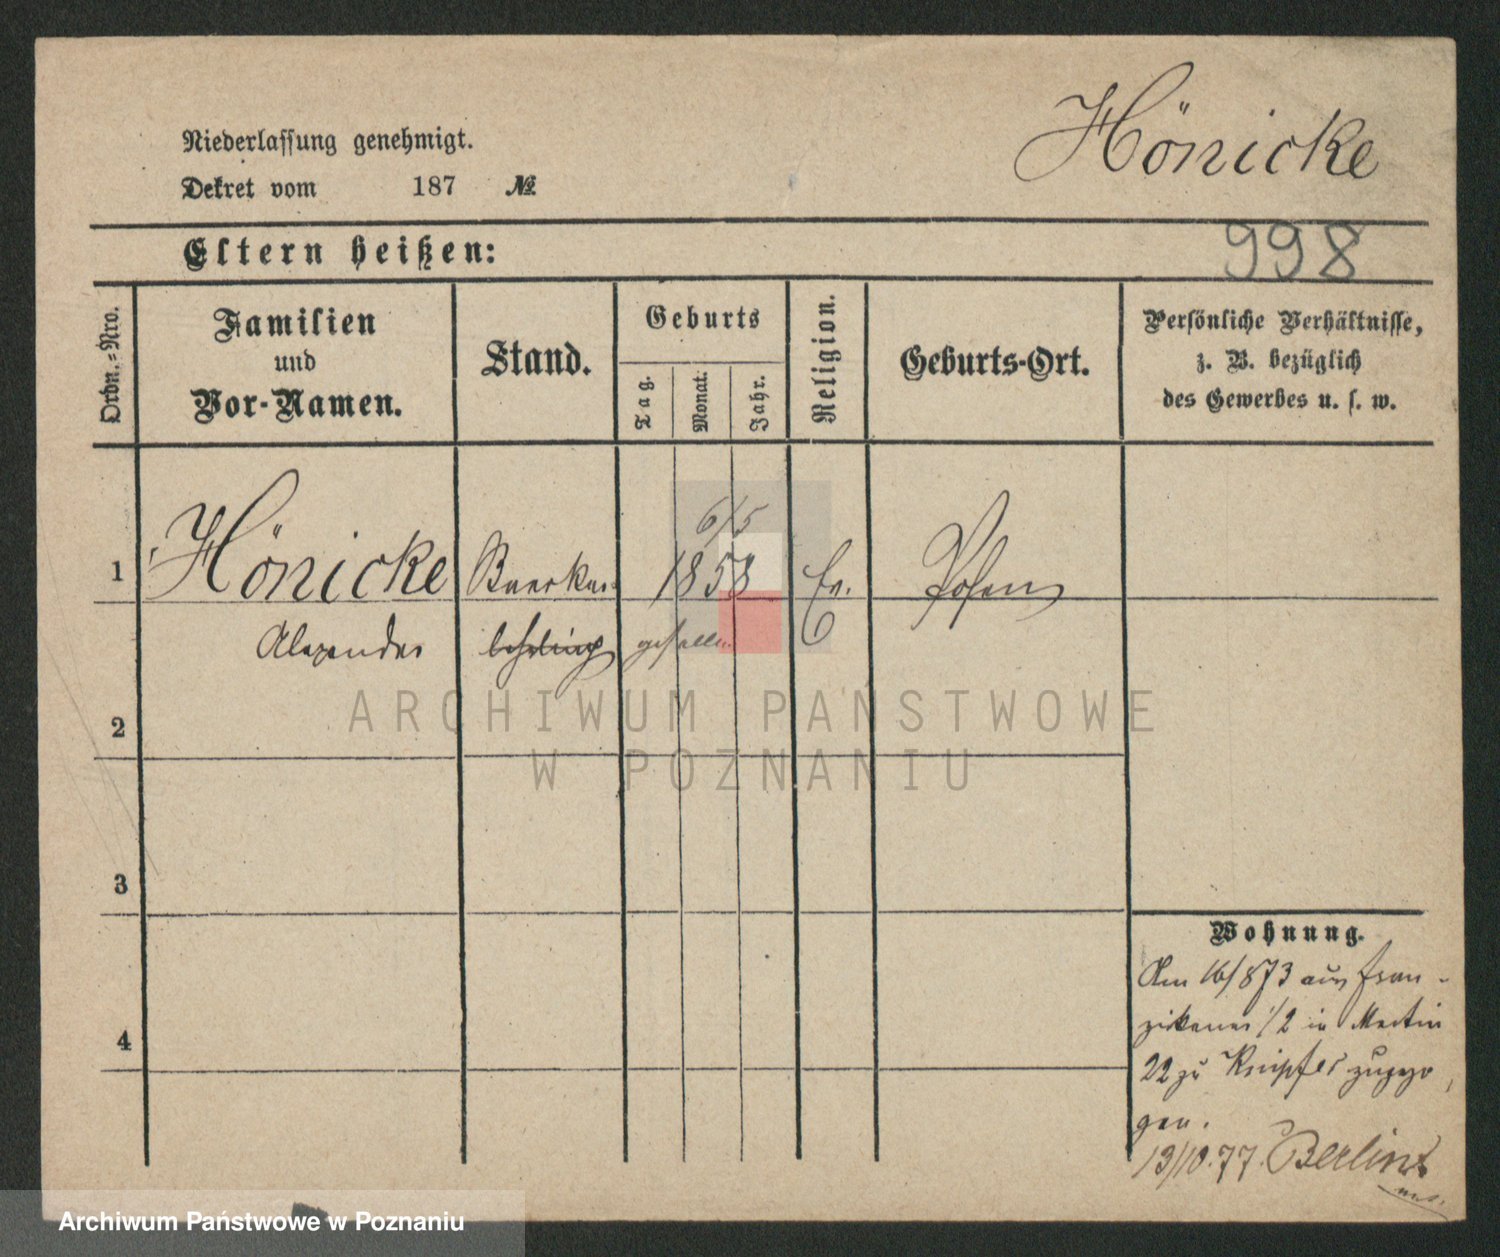 Hönicke
Niederlassung genehmigt.
Dekret vom 187 №
998
Eltern heißen:
Ordn.=Nro.
Familien
und
Vor-Namen.
Stand.
Geburts
Tag.
Monat.
Jahr.
Religion.
Geburts-Ort.
Persönliche Verhältnisse,
z. B. bezüglich
des Gewerbes u. s. w.
6/5
1 Hönicke 1858 Ev. Posen
Alexander lehrling gesellen
ARCHIWUM PAŃSTWOWE
W POZNANIU
2
3
4
Wohnung.
Am 16/873 aus Fran-
zikaner 1/2 in Martin
22 zu Knipfer zugezo
gen.
13/10.77. Berlin
Archiwum Państwowe w Poznaniu